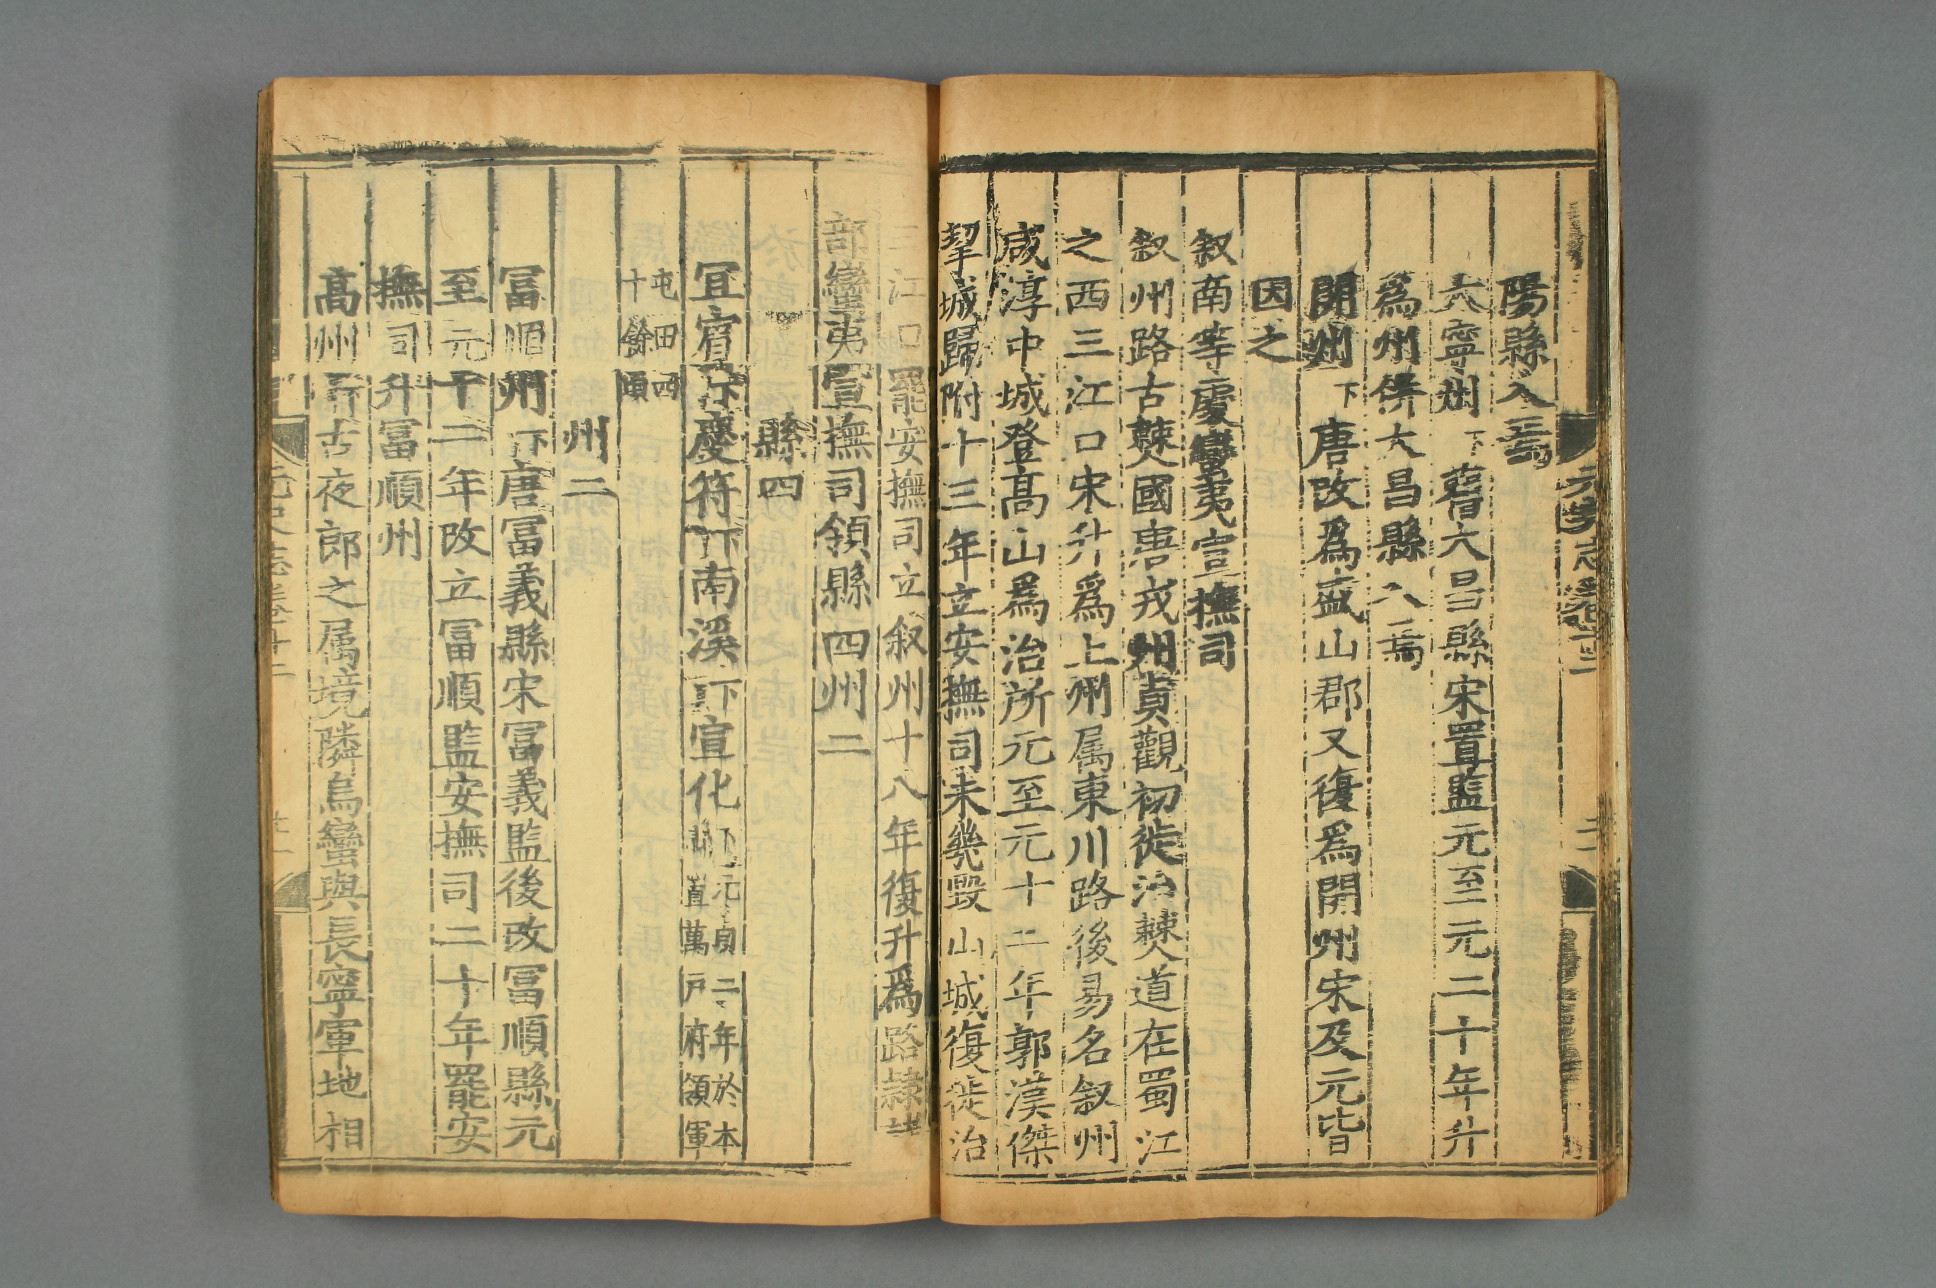 陽縣入焉
大寧州下舊大昌縣宋置監元至元二十年升
爲州併大昌縣入焉
開州下唐改爲盛山郡又復爲開州宋及元皆
因之
叙南等處蠻夷宣撫司
叙州路古僰國唐戎州貞觀初徙治僰道在蜀江
之西三江口宋升爲上州属東川路後易名叙州
咸淳中城登高山爲治所元至元十二年郭漢傑
挈城歸附十三年立安撫司未幾毀山城復徙治
三江口罷安撫司立叙州十八年復升爲路隷
部蠻夷宣撫司領縣四州二
縣四
宜賓下慶符下南溪下宣化下元貞二年於本
縣置萬戸府領軍
屯田四
十餘頃
州二
冨順州下唐冨義縣宋冨義監後改冨順縣元
至元十二年改立冨順監安撫司二十年罷安
撫司升冨順州
高州下古夜郎之属境隣烏蠻與長寧軍地相
元史志卷十二